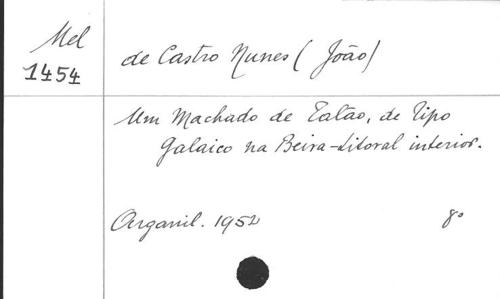 Mel
1454
de Castro Nunes (João)
Um Machado de Talão, de Tipo
Galaico na Beira-Litoral interior.
Arganil. 1952 8º